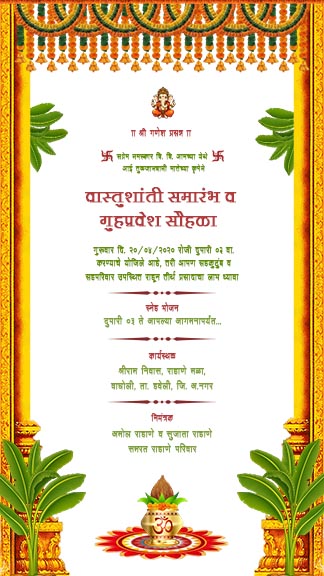 ॥ श्री गणेश प्रसन्न ॥
सप्रेम नमस्कार वि. वि. आमच्या येथे
आई तुळजाभवानी मातेच्या कृपेने
वास्तुशांती समारंभ व
गृहप्रवेश सोहळा
गुरूवार दि. २०/०४/२०२० रोजी दुपारी ०३ वा.
करण्याचे योजिले आहे, तरी आपण सहकुटुंब व
सहपरिवार उपस्थित राहून तीर्थ प्रसादाचा लाभ घ्यावा
स्नेह भोजन
दुपारी ०३ ते आपल्या आगमनापर्यंत...
कार्यस्थळ
श्रीराम निवास, राहाणे मळा,
वाघोली, ता. हवेली, जि. अ.नगर
निमंत्रक
अमोल राहाणे व सुजाता राहाणे
समस्त राहाणे परिवार
ॐ